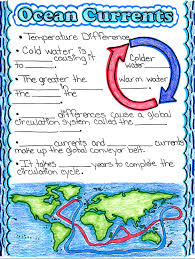 Ocean Currents
• Temperature Difference
• Cold water is ____
causing it
to ____.
Colder
water
• The greater the
____ the ____
the ____.
Warm water
• ____ differences cause a global
circulation system called the ____
____.
• ____ currents and ____ currents
make up the global conveyor belt.
• It takes ____ years to complete the
circulation cycle.